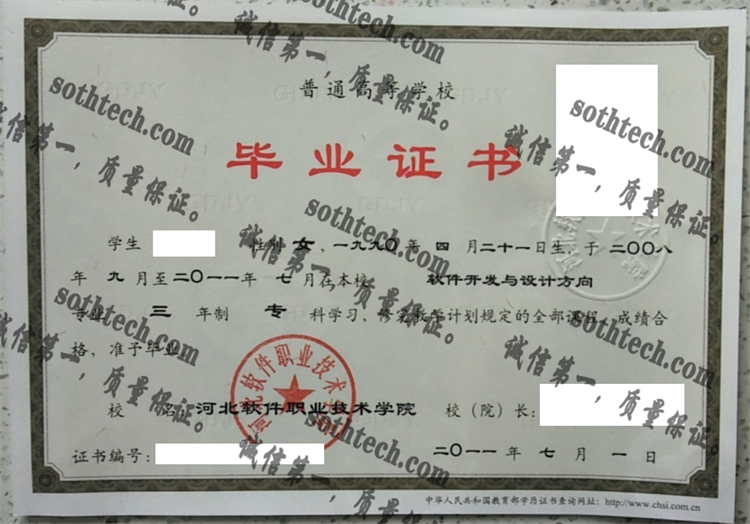 普通高等学校
毕业证书
学生 性别 女 ,一九九〇年 四 月二十一日生,于二〇〇八
年 九 月至二〇一一年 七 月在本校 软件开发与设计方向
专业 三 年制 专 科学习,修完教学计划规定的全部课程,成绩合
格,准予毕业。
校 名: 河北软件职业技术学院 校(院)长:
证书编号: 二〇一一 年 七 月 一 日
中华人民共和国教育部学历证书查询网址:http://www.chsi.com.cn
河北软件职业技术学院
sothtech.com
诚信第一,质量保证。
sothtech.com
诚信第一,质量保证。
sothtech.com
诚信第一,质量保证。
sothtech.com
诚信第一,质量保证。
sothtech.com
诚信第一,质量保证。
sothtech.com
诚信第一,质量保证。
sothtech.com
诚信第一,质量保证。